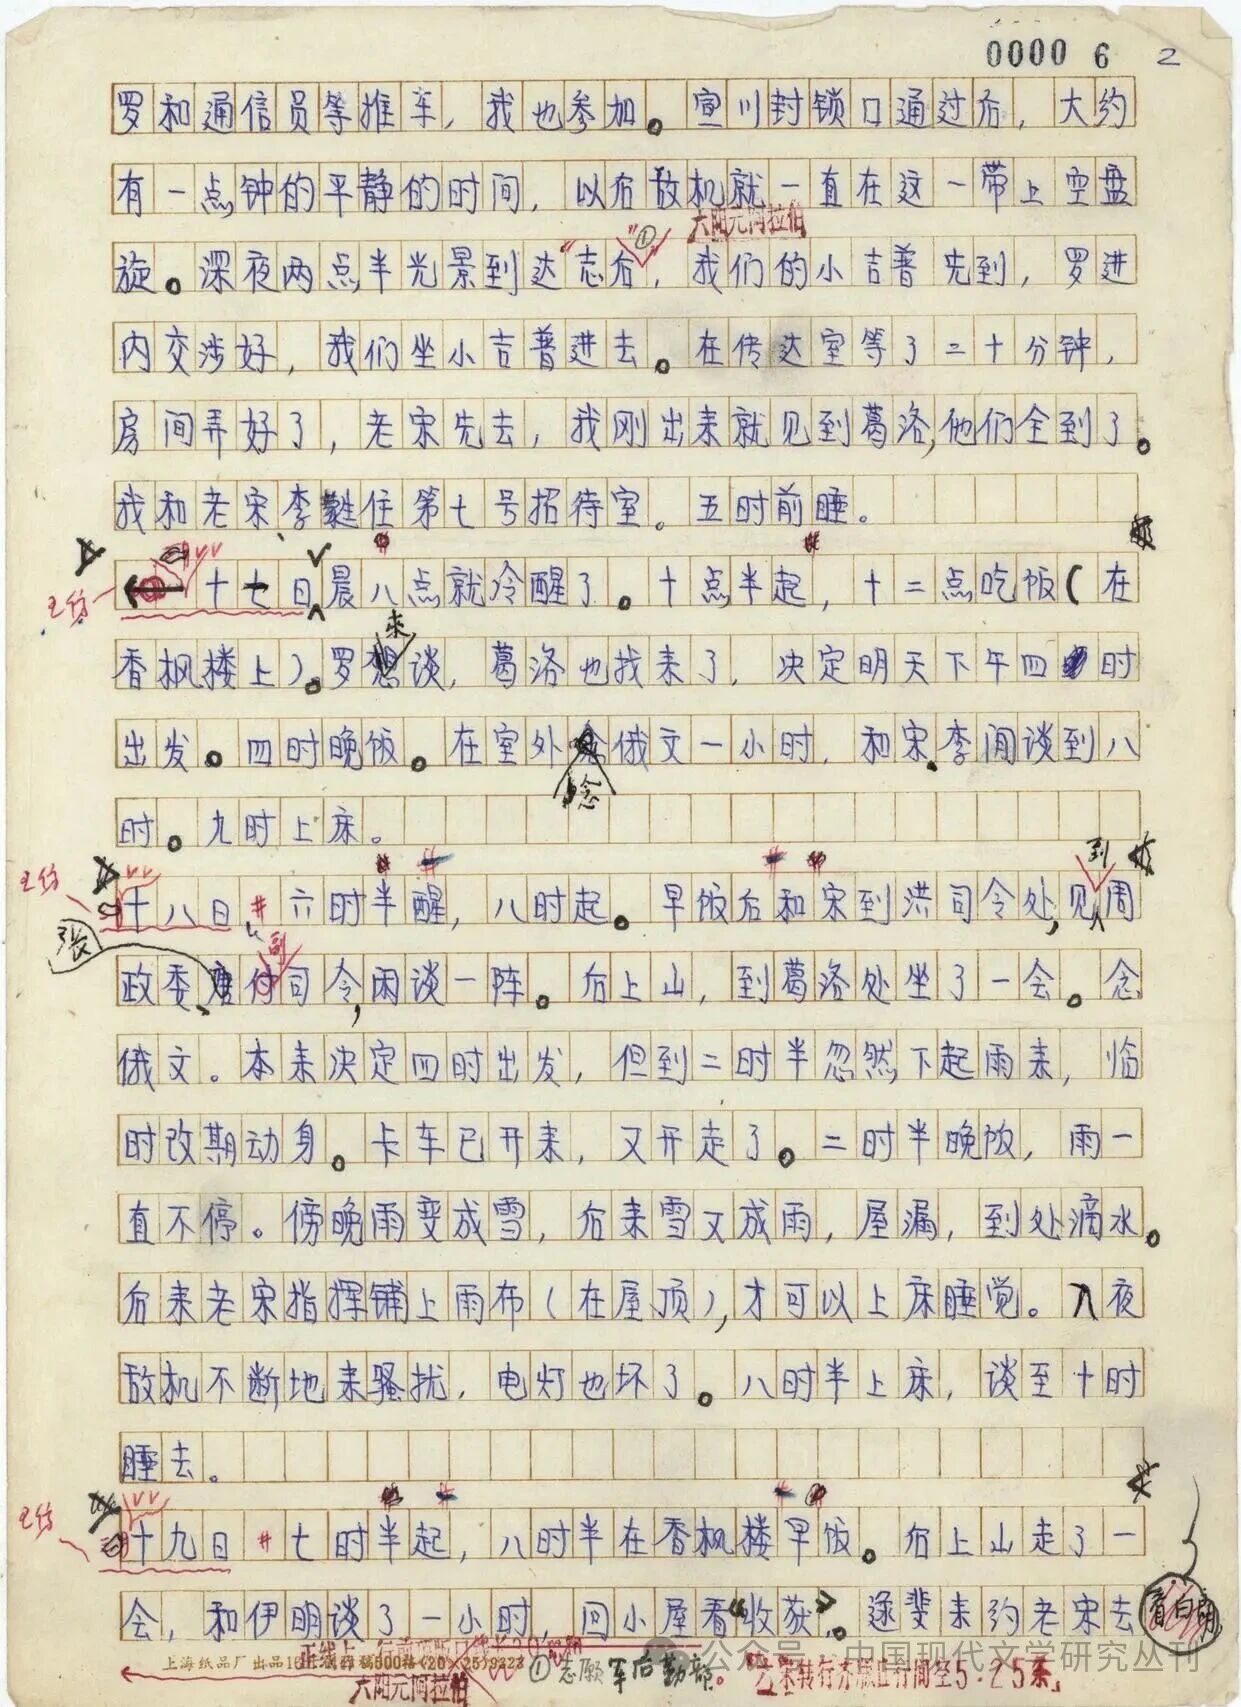 0000 6 2
罗和通信员等推车，我也参加。宣川封锁口通过后，大约
有一点钟的平静的时间，以后敌机就一直在这一带上空盘
六阳元阿拉伯
旋。深夜两点半光景到达“志后”①，我们的小吉普先到，罗进
内交涉好，我们坐小吉普进去。在传达室等了二十分钟，
房间弄好了，老宋先去，我刚出来就见到葛洛，他们全到了。
我和老宋、李蕤住第七号招待室。五时前睡。
十七日晨八点就冷醒了。十点半起，十二点吃饭（在
香枫楼上）。罗来谈，葛洛也找来了，决定明天下午四时
出发。四时晚饭。在室外念俄文一小时，和宋、李闲谈到八
时。九时上床。
十八日 六时半醒，八时起。早饭后和宋到洪司令处，见到周
政委、张副司令，闲谈一阵。后上山，到葛洛处坐了一会。念
俄文。本来决定四时出发，但到二时半忽然下起雨来，临
时改期动身。卡车已开来，又开走了。二时半晚饭，雨一
直不停。傍晚雨变成雪，后来雪又成雨，屋漏，到处滴水。
后来老宋指挥铺上雨布（在屋顶），才可以上床睡觉。入夜
敌机不断地来骚扰，电灯也坏了。八时半上床，谈至十时
睡去。
十九日 七时半起，八时半在香枫楼早饭。后上山走了一
会，和伊明谈了一小时，回小屋看“收获”。逯斐来约老宋去看白朗
上海纸品厂出品
①志愿军后勤部。
六阳元阿拉伯
公众号 中国现代文学研究丛刊